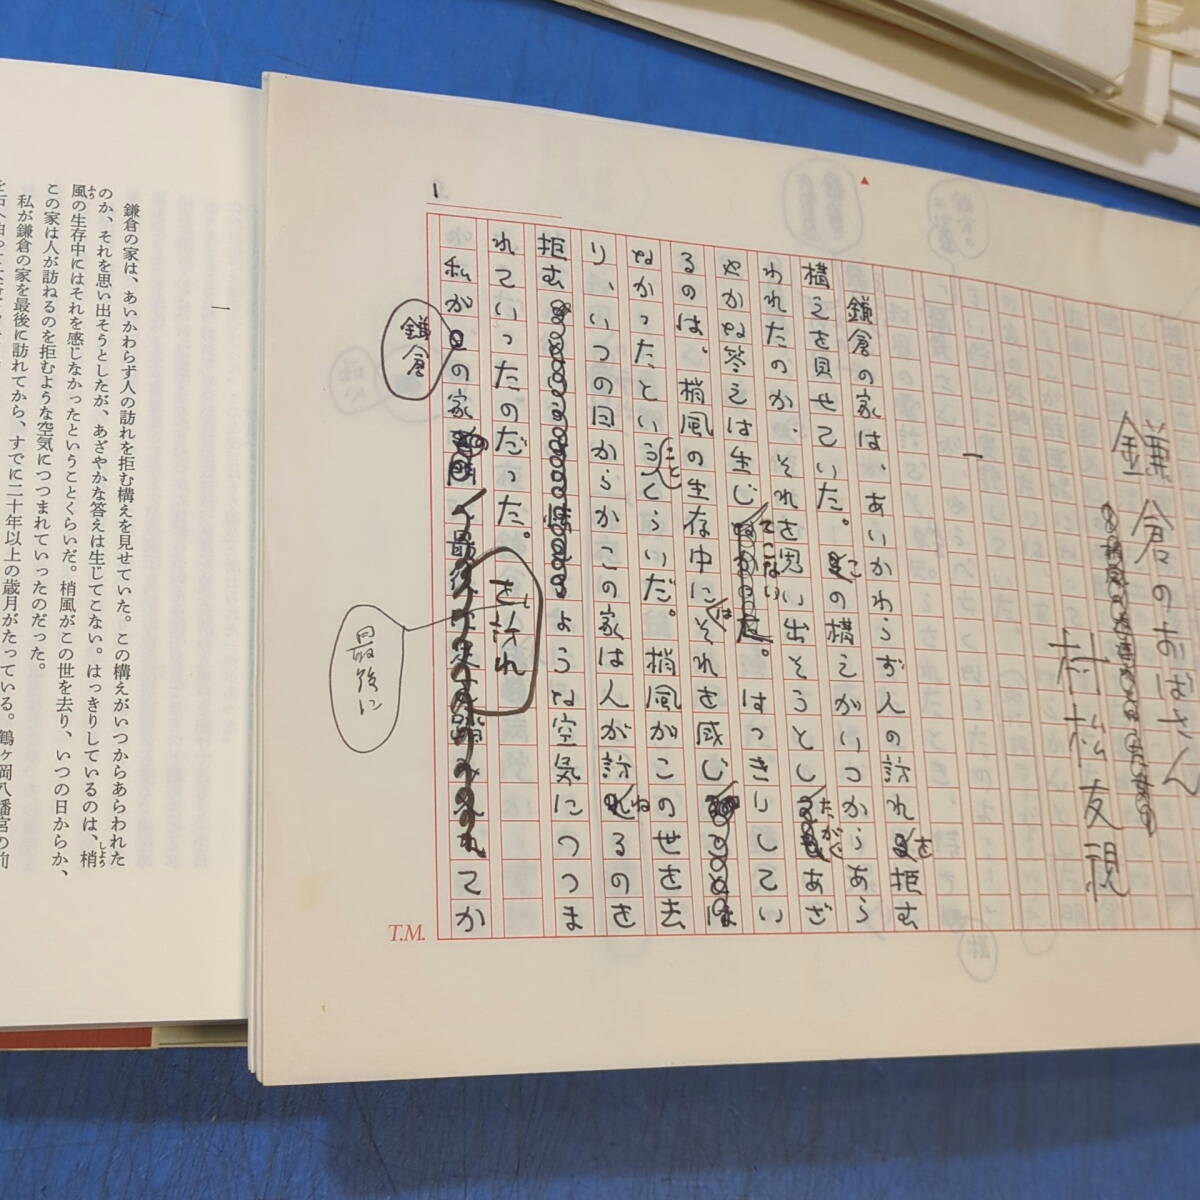 鎌倉のおばさん
村松友視
一
鎌倉の家は、あいかわらず人の訪れを拒む
構えを見せていた。この構えがいつからあら
われたのか、それを思い出そうとしたが、あざ
やかな答えは生じてこない。はっきりしてい
るのは、梢風の生存中にはそれを感じ
なかったということくらいだ。梢風がこの世を去
り、いつの日からかこの家は人が訪ねるのを
拒むような空気につつま
れていったのだった。
私が鎌倉の家を最後に訪れてか
1
T.M.
一
鎌倉の家は、あいかわらず人の訪れを拒む構えを見せていた。この構えがいつからあらわれた
のか、それを思い出そうとしたが、あざやかな答えは生じてこない。はっきりしているのは、梢
しょう
風の生存中にはそれを感じなかったということくらいだ。梢風がこの世を去り、いつの日からか、
ふう
この家は人が訪ねるのを拒むような空気につつまれていったのだった。
私が鎌倉の家を最後に訪れてから、すでに二十年以上の歳月がたっている。鶴ヶ岡八幡宮の前